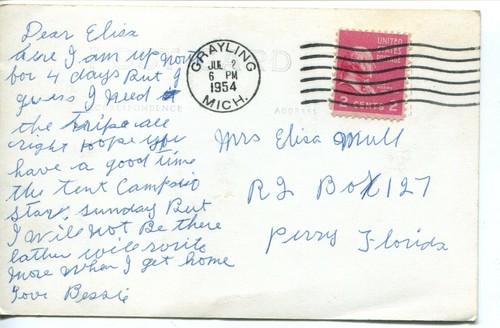 Dear Elisa
here I am up North
for 4 days But I
guess I need it
the trips are
right hope you
have a good time
the tent Camp
Start Sunday But
I will Not Be there
will write
More When I get home
Love Bessie
CORRESPONDENCE
ADDRESS
GRAYLING
JUL 2
6 PM
1954
MICH.
UNITED
STATES
POSTAGE
2 CENTS 2
Mrs Elisa Mull
R2 BOX 127
Perry Florida